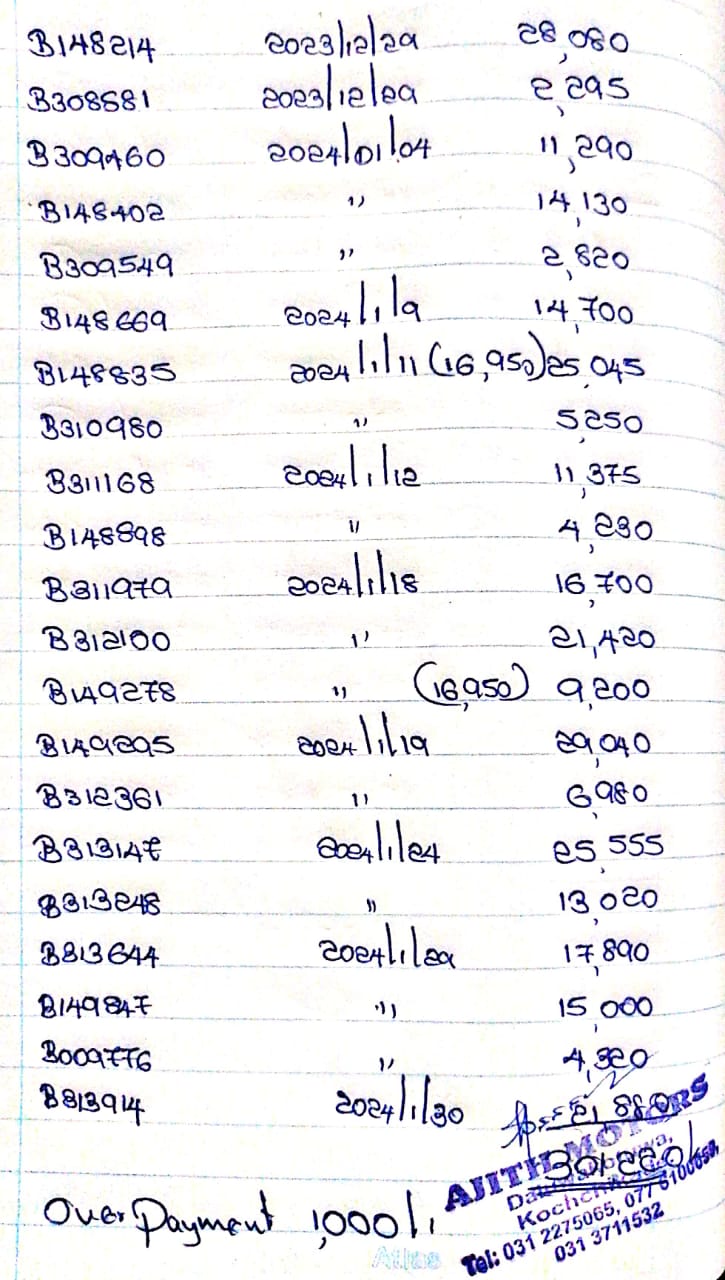 B148214 2023/12/29 28,080
B308581 2023/12/29 2,295
B309460 2024/01/04 11,290
B148402 " 14,130
B309549 " 2,820
B148669 2024/1/9 14,700
B148835 2024/1/11 (16,950) 25,045
B310980 " 5,250
B311168 2024/1/12 11,375
B148898 " 4,230
B311979 2024/1/18 16,700
B312100 " 21,420
B149278 " (16,950) 9,200
B149295 2024/1/19 29,040
B312361 " 6,980
B313147 2024/1/24 25,555
B313248 " 13,020
B313644 2024/1/29 17,890
B149847 " 15,000
B009776 " 4,320
B313914 2024/1/30 21,880
301,220/
AJITH MOTORS
Tel: 031 2275065, 077 6100658
031 3711532
Over Payment 1,000/.
Atlas